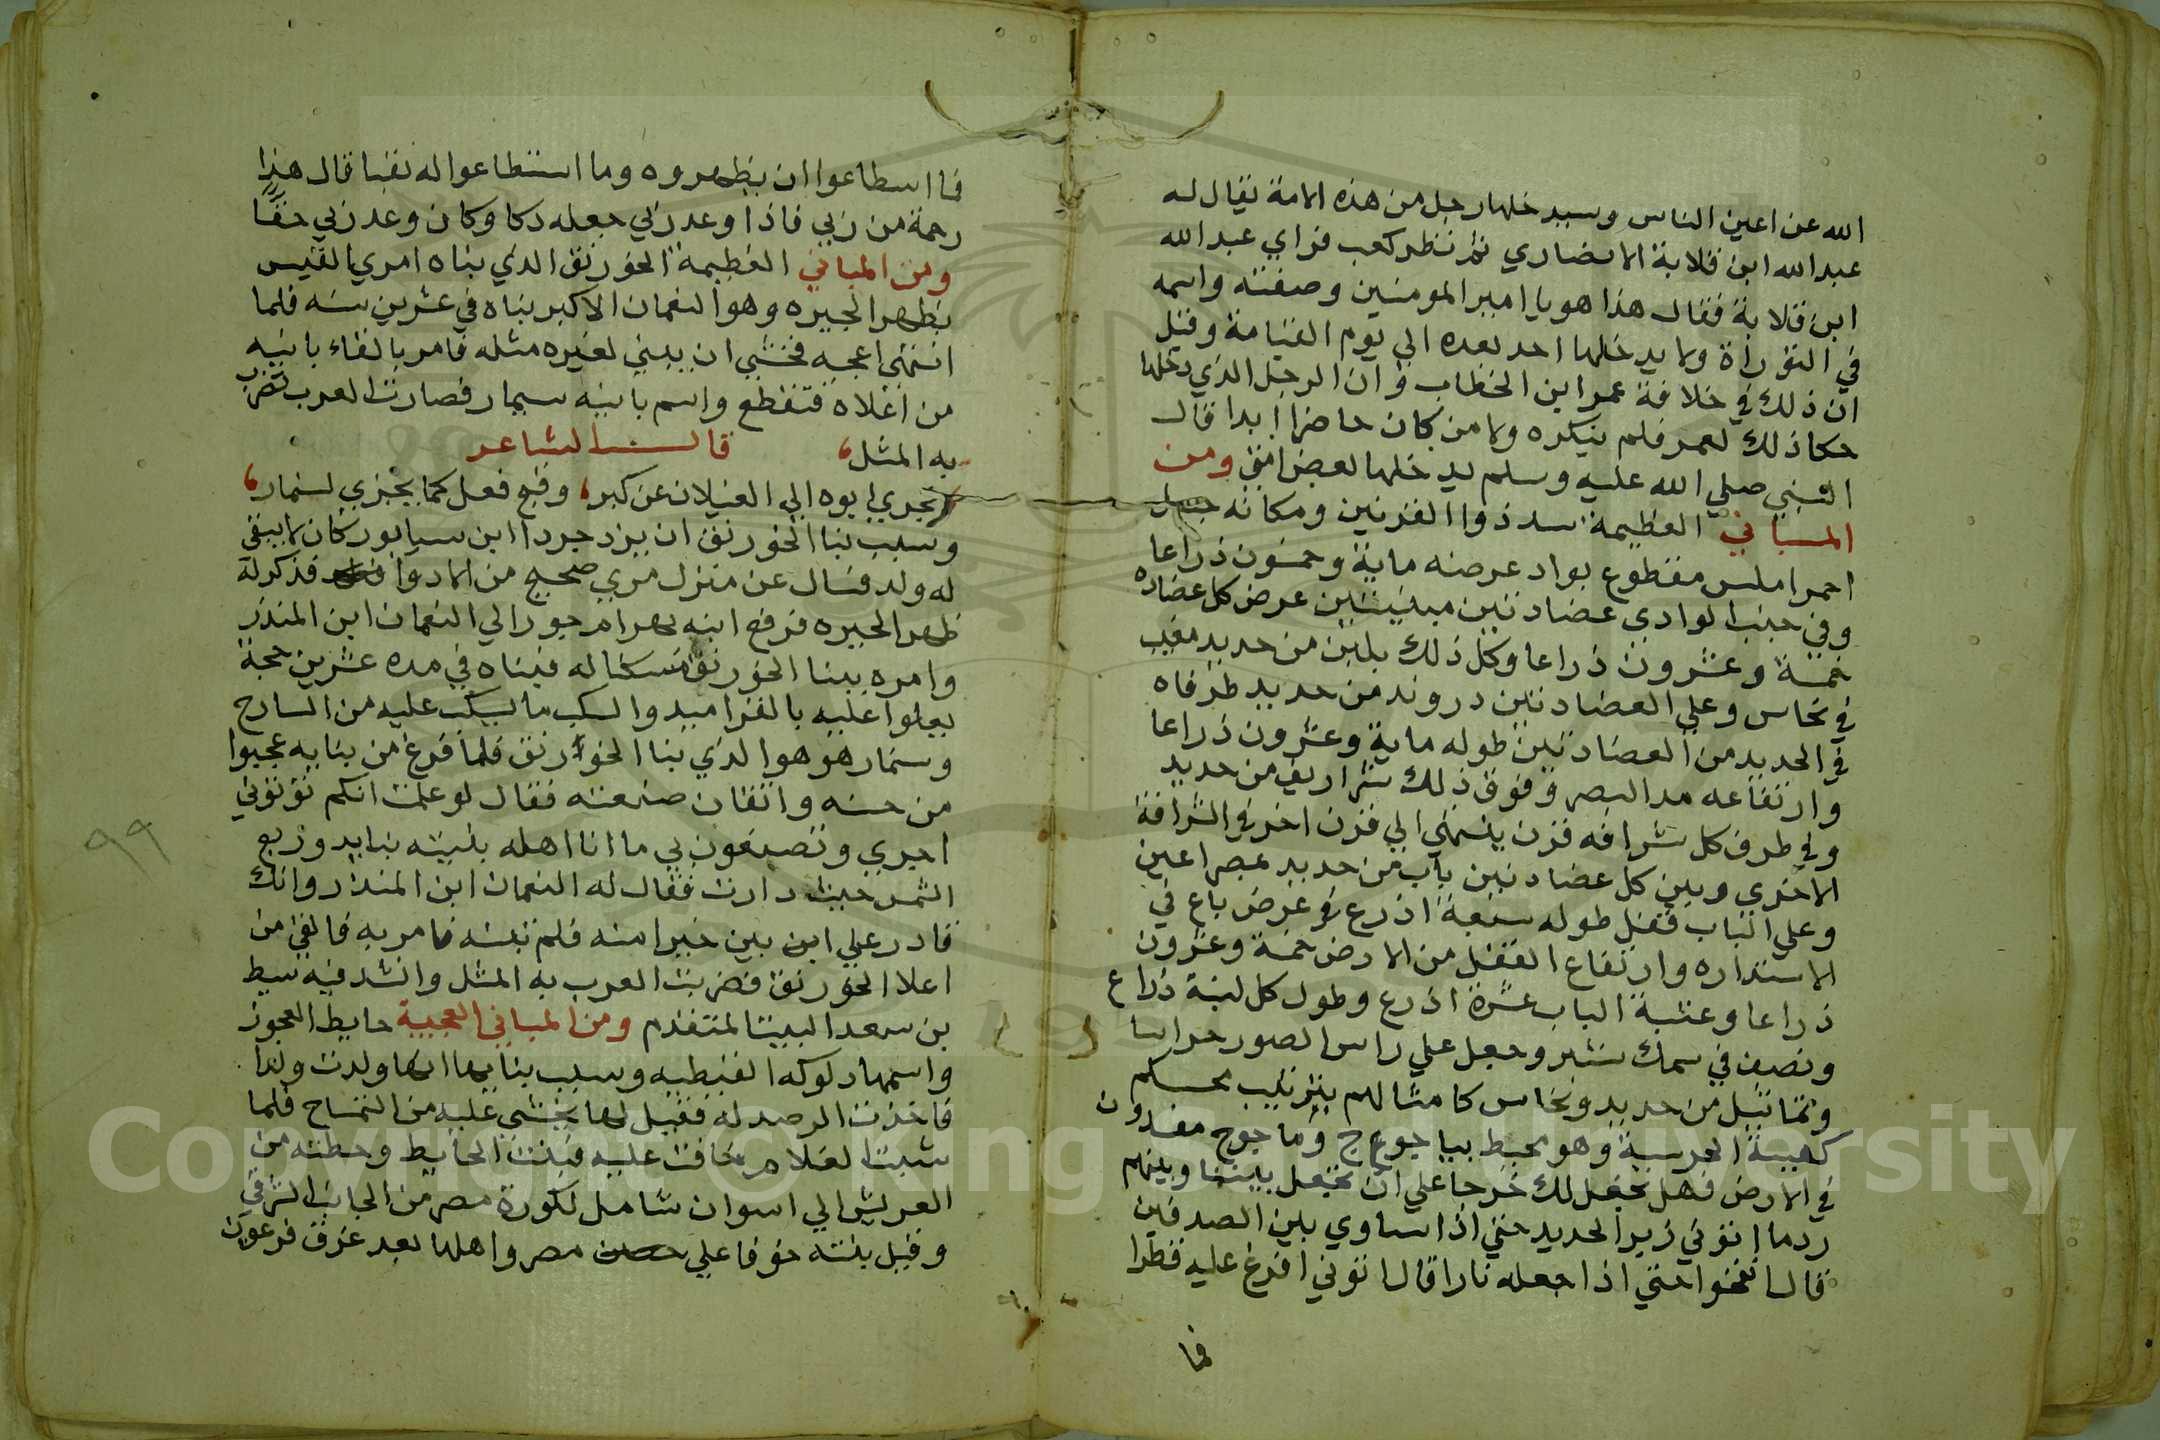 الله عن اعين الناس وسيدخلها رجل من هذه الامة يقال له
عبد الله ابن قلابة الانصاري ثم نظر كعب فراي عبد الله
ابن قلابة فقال هذا هو يا امير المومنين وصفته واسمه
في التوراة ولا يدخلها احد بعده الي يوم القيامة وقيل
ان ذلك في خلافة عمر ابن الخطاب وان الرجل الذي دخلها
حكا ذلك لعمر فلم ينكره ولا من كان حاضرا ابدا قال
النبي صلي الله عليه وسلم يدخلها بعض امتي ومن
المباني العظيمة سد ذوا القرنين ومكانه جبل
احمر املس مقطوع بواد عرضه ماية وخمسون ذراعا
وفي جنب الوادي عضادتين مبنيتين عرض كل عضاده
خمسة وعشرون ذراعا وكل ذلك بلبن من حديد مغيب
في نحاس وعلي العضادتين دروند من حديد طرفاه
في الحديد من العضادتين طوله ماية وعشرون ذراعا
وارتفاعه مد البصر وفوق ذلك شراريف من حديد
وفي طرف كل شرافه قرن ينتهي الي قرن اخر في الشرافة
الاخري وبين كل عضادتين باب من حديد بمصراعين
وعلي الباب قفل طوله سبعة اذرع في عرض باع في
الاستداره وارتفاع القفل من الارض خمسة وعشرون
ذراعا وعتبة الباب عشرة اذرع وطول كل لبنة ذراع
ونصف في سمك شبر وجعل علي راس الصور حراسا
وتماثيل من حديد ونحاس كامثالهم بترتيب محكم
كهيبة الحرسية وهو محيط بياجوج وماجوج مفسدون
في الارض فهل نجعل لك خرجا علي ان تجعل بيننا وبينهم
ردما اتوني زبر الحديد حتي اذا ساوي بين الصدفين
قال انفخوا حتي اذا جعله نارا قال اتوني افرغ عليه قطرا
فما
فما اسطاعوا ان يظهروه وما استطاعوا له نقبا قال هذا
رحمة من ربي فاذا وعد ربي جعله دكا وكان وعد ربي حقا
ومن المباني العظيمة الخورنق الذي بناه امري القيس
بظهر الحيره وهو النعمان الاكبر بناه في عشرين سنه فلما
انتهي اعجبه فخشي ان يبني لغيره مثله فامر بالقاء بانيه
من اعلاه فتقطع واسم بانيه سيمار فصارت العرب تضرب
به المثل، قال الشاعر
جزي ابوه الي الغيلان عن كبر، وقبح فعل كما يجزي لسنمار،
وسبب بنا الخورنق ان يزدجردا ابن سابور كان لا يبقي
له ولد فسال عن منزل مري صحيح من الادوا فذكر له
ظهر الحيره فرفع ابنه بهرام جور الي النعمان ابن المنذر
وامره ببنا الخورنق مسكنا له فبناه في مده عشرين حجة
يعلوا عليه بالقراميد والسكب ما ليسكب عليه من السارج
وسنمار هو هوا الذي بنا الخورنق فلما فرغ من بنايه عجبوا
من حسنه واتقان صنعته فقال لو علمت انكم توتوني
اجري وتصنعون بي ما انا اهله بنيته بنا يدور مع
الشمس حيث دارت فقال له النعمان ابن المنذر وانك
قادر علي ابن يبن خيرا منه فلم تبنه فامر به فالقي من
اعلا الخورنق فضربت العرب به المثل وانشد فيه سيط
بن سعد البيت المتقدم ومن المباني العجيبة حايط العجوز
واسمها دلوكه القبطيه وسبب بنايها انها ولدت ولدا
فاخذت الرصد له فقيل لها يخشي عليه من التمساح فلما
شبت الغلام خافت عليه فبنت الحايط وحطته من
العريش الي اسوان شامل لكورة مصر من الجانب الشرقي
وقيل بنته خوفا علي مصر واهلها بعد غرق فرعون
٩٩
Copyright © King University